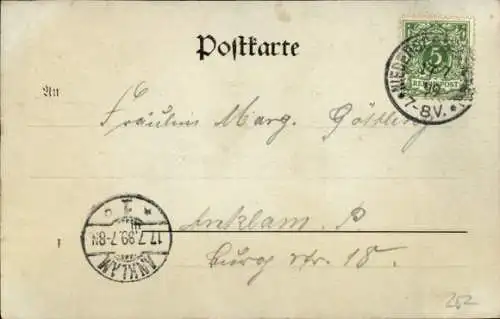 Postkarte
5
REICHSPOST
7-8V.
An
Fräulein Marg. Göttling
Anklam. P
Burg str. 18.
1
17.7.99.7-8N
ANKLAM
252